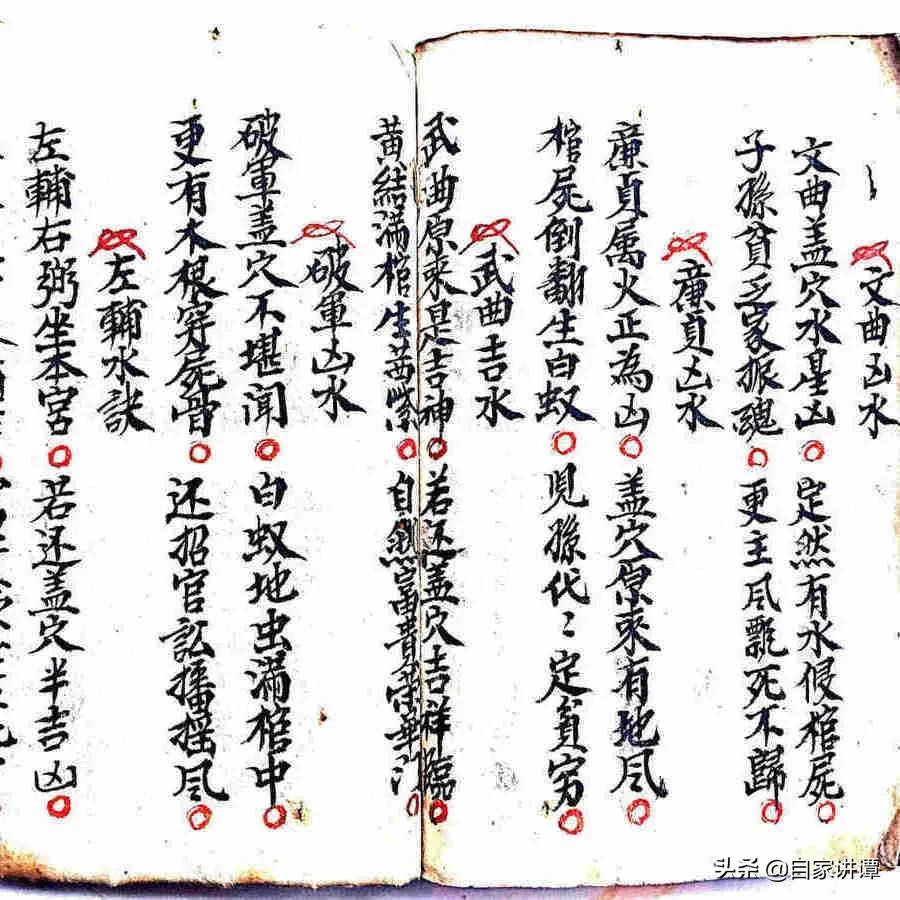 文曲凶水
文曲盖穴水星凶 定然有水侵棺屍
子孫貧乏家振魂 更主凨飄死不歸
廉貞凶水
廉貞属火正為凶 盖穴原来有地凨
棺屍倒翻生白蚁 児孫代〻定貧穷
武曲吉水
武曲原来是吉神 若还盖穴吉祥臨
黄結满棺生茜紫 自然富貴荣華门
破軍凶水
破軍盖穴不堪聞 白蚁地虫满棺中
更有木根穿屍骨 还招官訟播摇凨
左輔水訣
左輔右弼坐本宮 若还盖穴半吉凶
头条 @自家讲谭